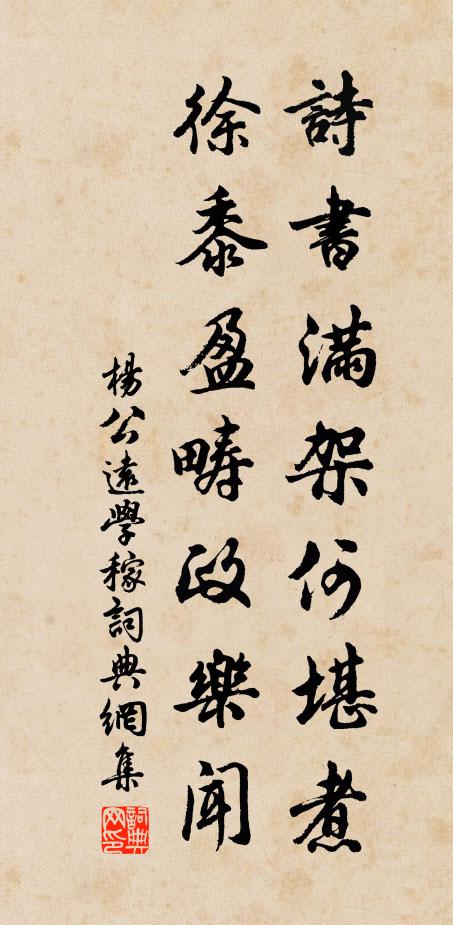 詩書滿架何堪煮
徐黍盈疇政樂聞
楊公遠學稼詞典網集
詞典网印